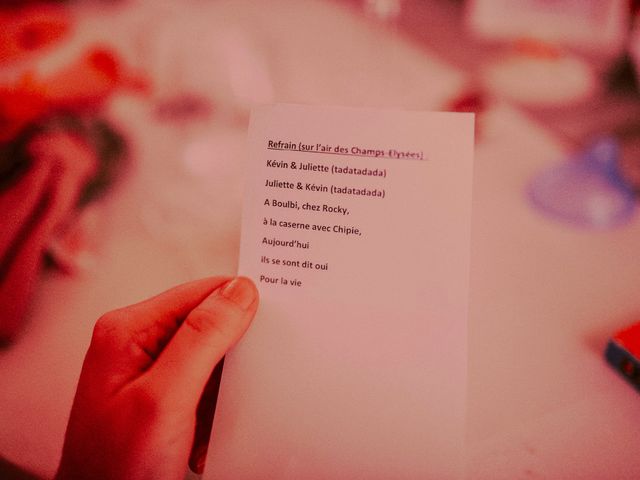 Refrain (sur l'air des Champs-Elysées)
Kévin & Juliette (tadatadada)
Juliette & Kévin (tadatadada)
A Boulbi, chez Rocky,
à la caserne avec Chipie,
Aujourd'hui
ils se sont dit oui
Pour la vie